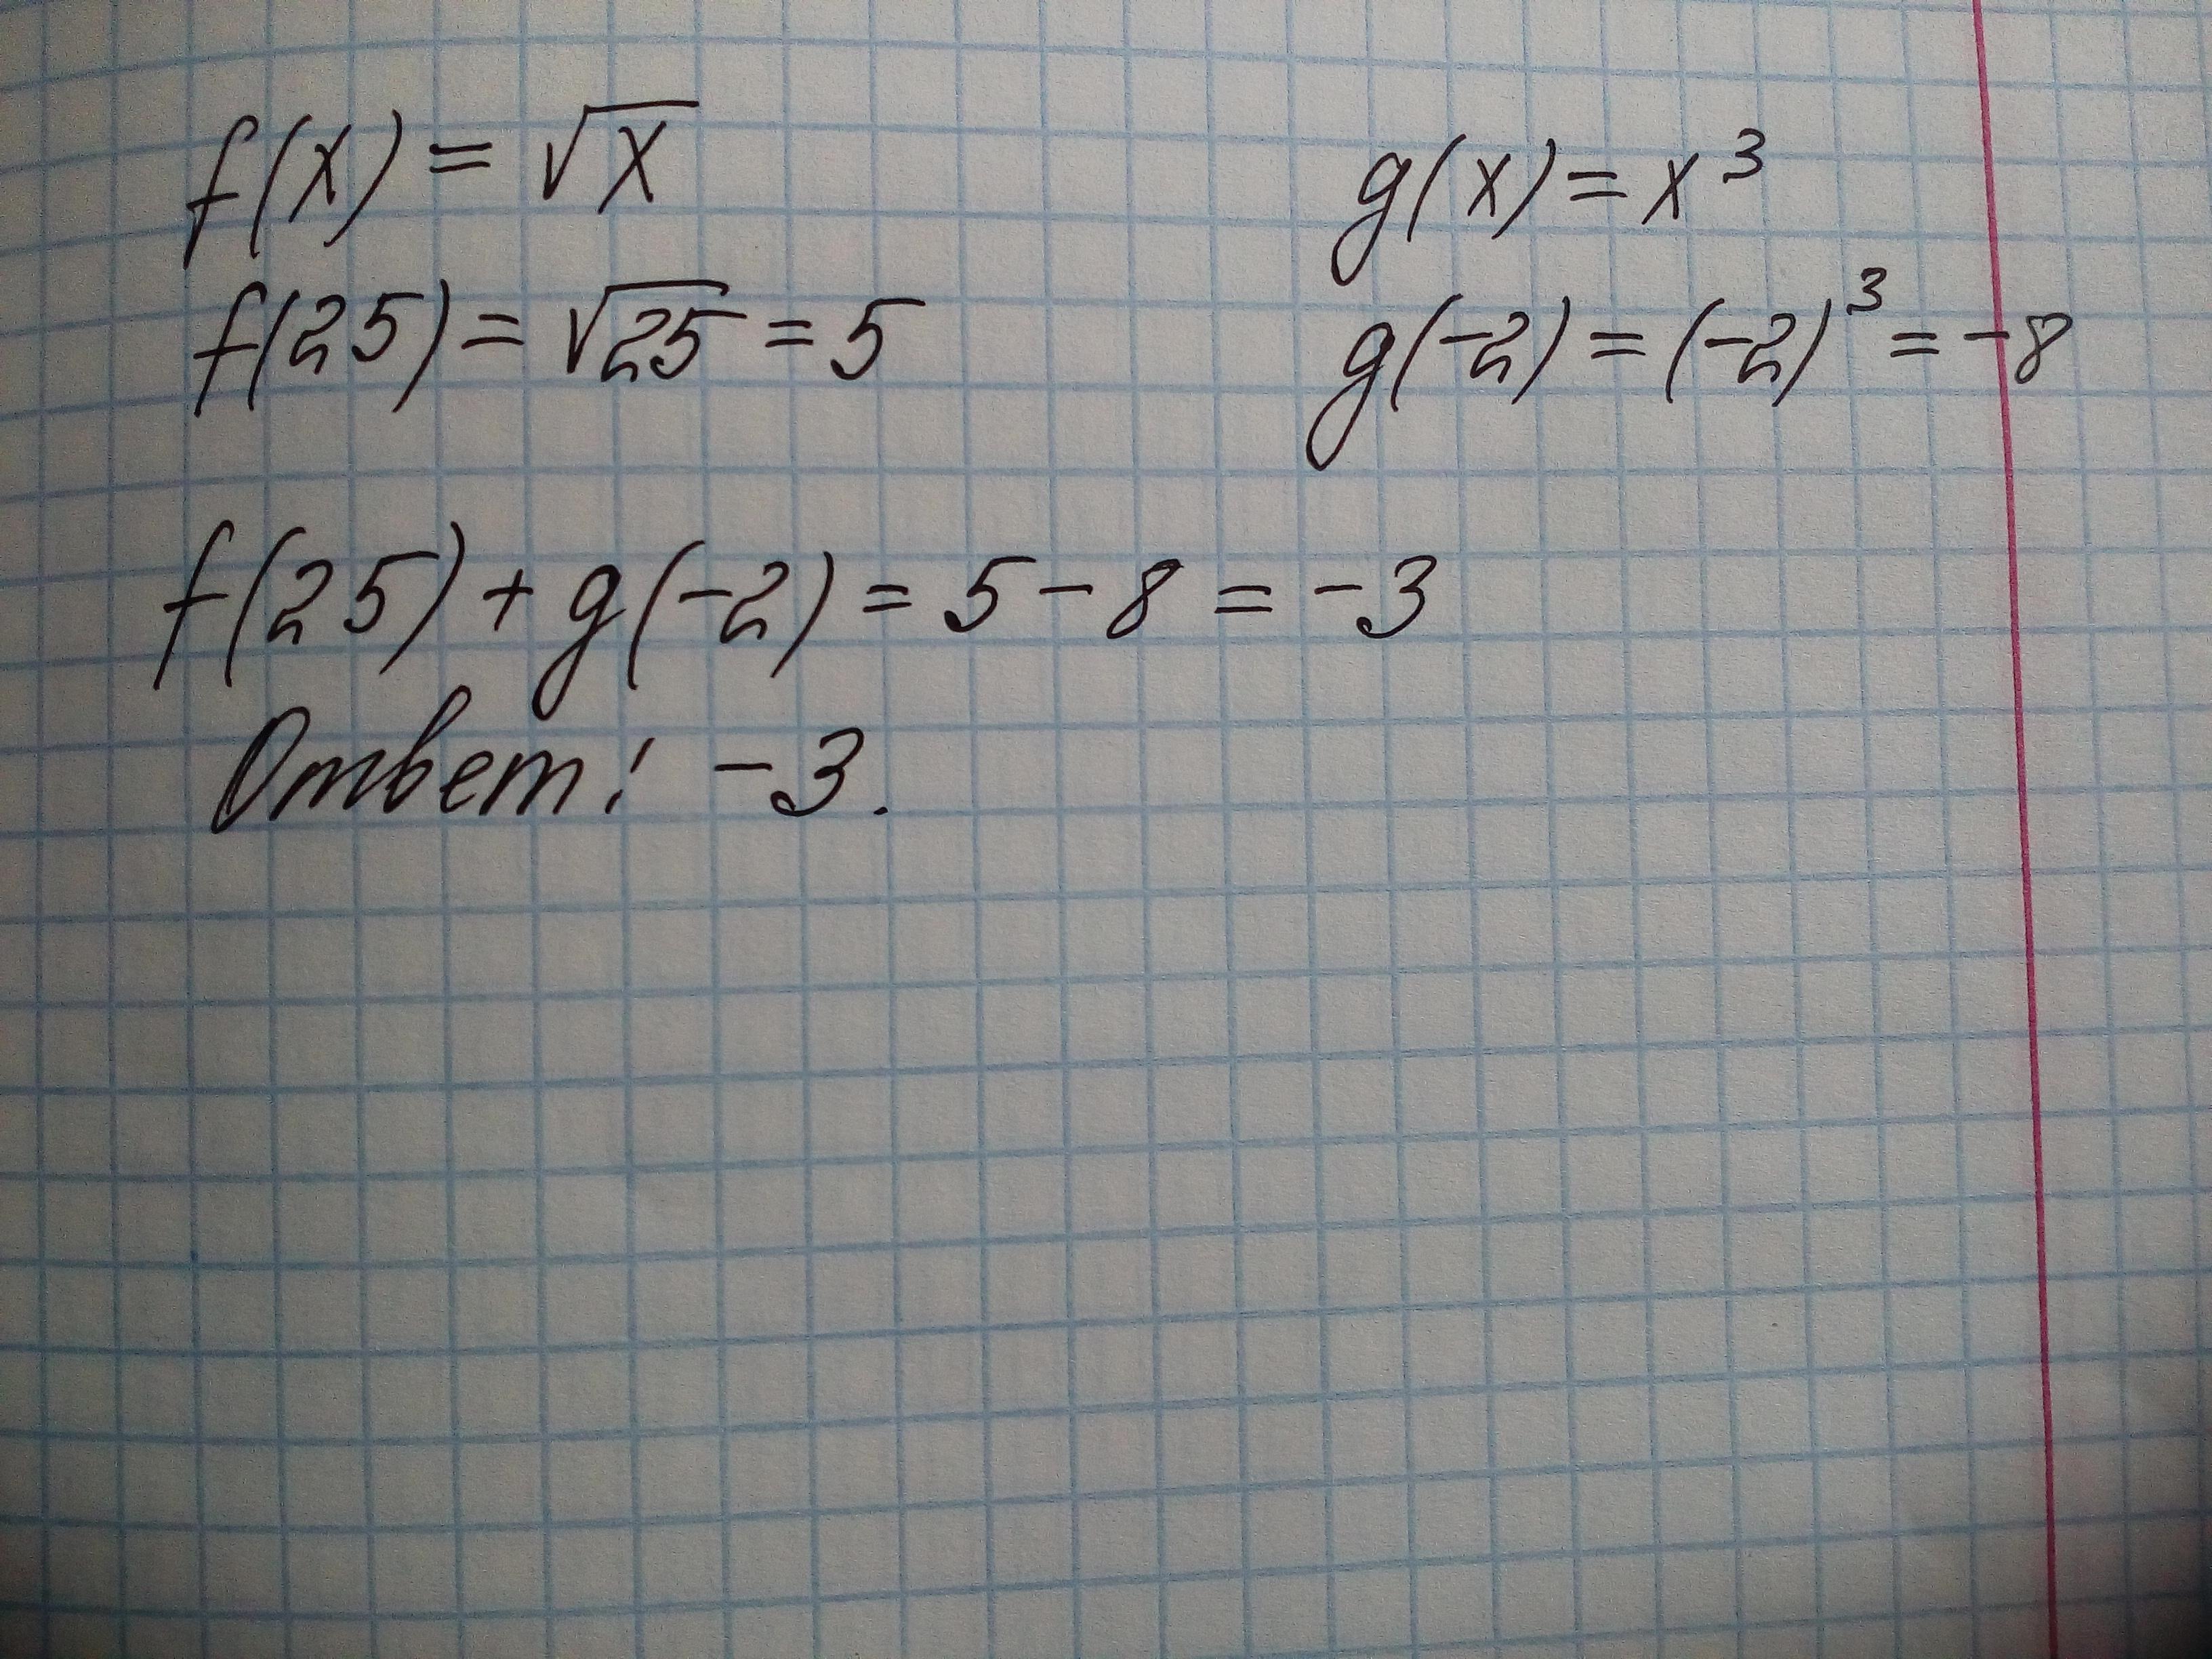 f(x) = √x
g(x) = x³
f(25) = √25 = 5
g(-2) = (-2)³ = -8
f(25) + g(-2) = 5 - 8 = -3
Ответ: -3.